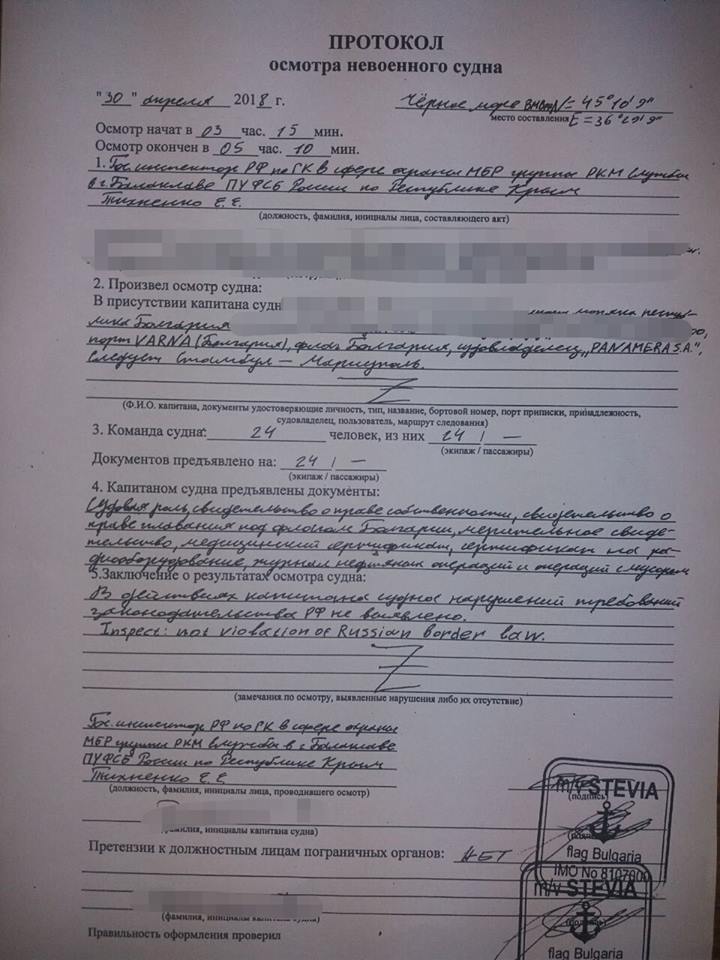 ПРОТОКОЛ
осмотра невоенного судна
"30" апреля 2018 г.
Чёрное море N= 45°10'9"
место составления E = 36°29'9"
Осмотр начат в 03 час. 15 мин.
Осмотр окончен в 05 час. 10 мин.
1. Гос. инспектор РФ по ГК в сфере охраны МБР группы РКМ службы
в г. Балаклаве ПУ ФСБ России по Республике Крым
Тихненко Е.Е.
(должность, фамилия, инициалы лица, составляющего акт)
2. Произвел осмотр судна:
В присутствии капитана судн
лика Болгария
порт VARNA (Болгария), флаг Болгария, судовладелец „PANAMERA S.A.",
следует Стамбул – Мариуполь.
(Ф.И.О. капитана, документы удостоверяющие личность, тип, название, бортовой номер, порт приписки, принадлежность,
судовладелец, пользователь, маршрут следования)
3. Команда судна: 24 человек, из них 24 / —
(экипаж / пассажиры)
Документов предъявлено на: 24 / —
(экипаж / пассажиры)
4. Капитаном судна предъявлены документы:
Судовая роль, свидетельство о праве собственности, свидетельство о
праве плавания под флагом Болгарии, мерительное свиде-
тельство, медицинский сертификат, сертификат на ра-
диооборудование, журнал нефтяных операций и операций с мусором
5.Заключение о результатах осмотра судна:
В действиях капитана судна нарушений требований
законодательства РФ не выявлено.
Inspect: not violation of Russian border law.
(замечания по осмотру, выявленные нарушения либо их отсутствие)
Гос. инспектор РФ по ГК в сфере охраны
МБР группы РКМ службы в г. Балаклаве
ПУ ФСБ России по Республике Крым
Тихненко Е.Е.
(должность, фамилия, инициалы лица, проводившего осмотр)
(подпись)
m/v STEVIA
flag Bulgaria
IMO No 8107000
амилия, инициалы капитана судна)
Претензии к должностным лицам пограничных органов: НЕТ
m/v STEVIA
flag Bulgaria
(фамилия, инициалы капитана судна)
Правильность оформления проверил